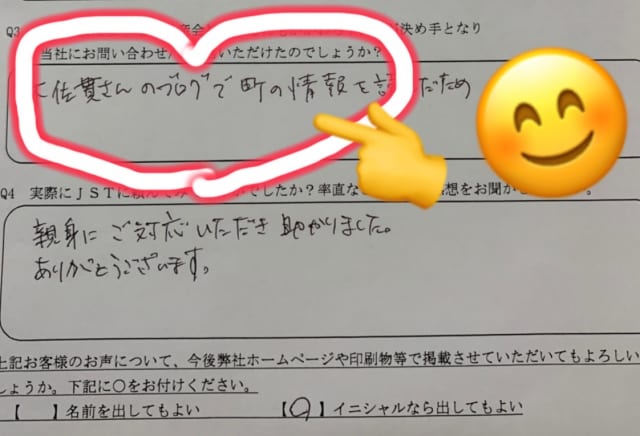 Q3 産会 決め手となり
当社にお問い合わせ いただけたのでしょうか?
佐貫さんのブログで町の情報を読んだため
Q4 実際にJSTに でしたか?率直な 想をお聞か
親身にご対応いただき助かりました。
ありがとうございます。
上記お客様のお声について、今後弊社ホームページや印刷物等で掲載させていただいてもよろしい
しょうか。下記に○をお付けください。
【 】名前を出してもよい 【○】イニシャルなら出してもよい